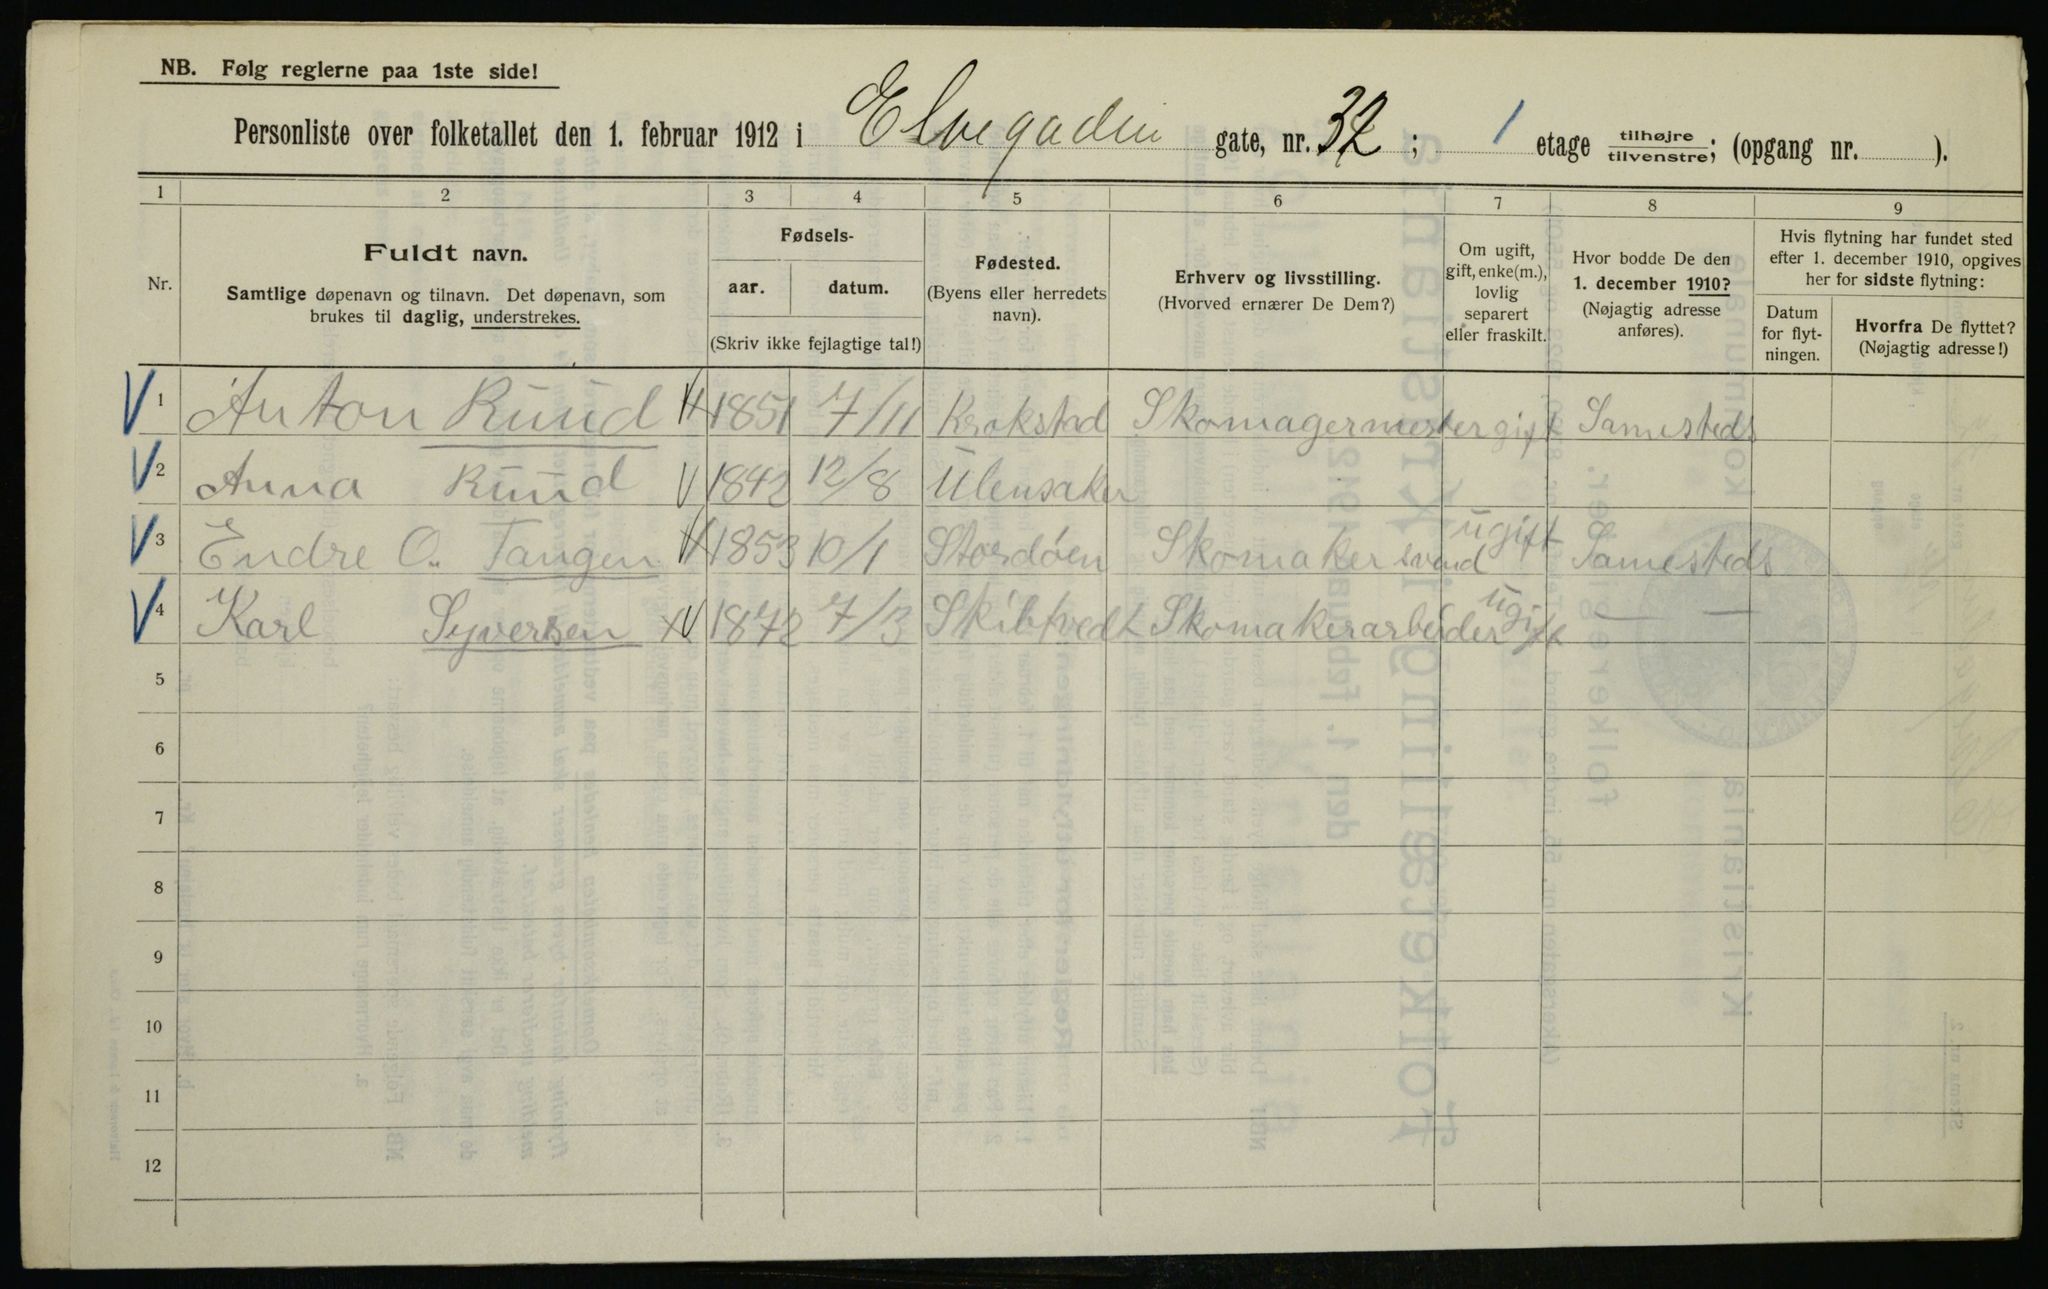 NB. Følg reglerne paa 1ste side!
Personliste over folketallet den 1. februar 1912 i Elvegaden gate, nr. 32; 1 etage tilhøjre/tilvenstre; (opgang nr. ).
1 2 3 4 5 6 7 8 9
Nr.
Fuldt navn.
Samtlige døpenavn og tilnavn. Det døpenavn, som
brukes til daglig, understrekes.
Fødsels-
aar. datum.
(Skriv ikke fejlagtige tal!)
Fødested.
(Byens eller herredets
navn).
Erhverv og livsstilling.
(Hvorved ernærer De Dem?)
Om ugift,
gift, enke(m.),
lovlig
separert
eller fraskilt.
Hvor bodde De den
1. december 1910?
(Nøjagtig adresse
anføres).
Hvis flytning har fundet sted
efter 1. december 1910, opgives
her for sidste flytning:
Datum
for flyt-
ningen.
Hvorfra De flyttet?
(Nøjagtig adresse!)
1 Anton Ruud 1851 7/11 Krokstad Skomagermester gift Samesteds
2 Anna Ruud 1842 12/8 Ulensaker
3 Endre O. Tangen 1853 10/1 Stordöen Skomakersvend ugift Samesteds
4 Karl Syversen 1872 7/3 Skibtvedt Skomakerarbeider ugift — —
5
6
7
8
9
10
11
12